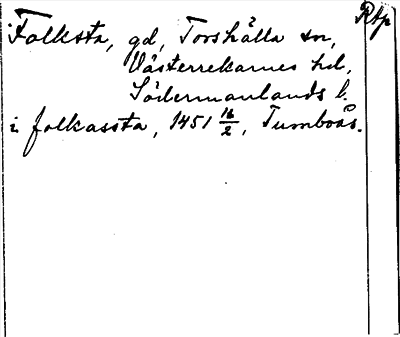 Rbp
Folkesta, gd, Torshälla sn,
Västerrekarnes hd,
Södermanlands l.
i folkassta, 1451 16/2, Tumboås.